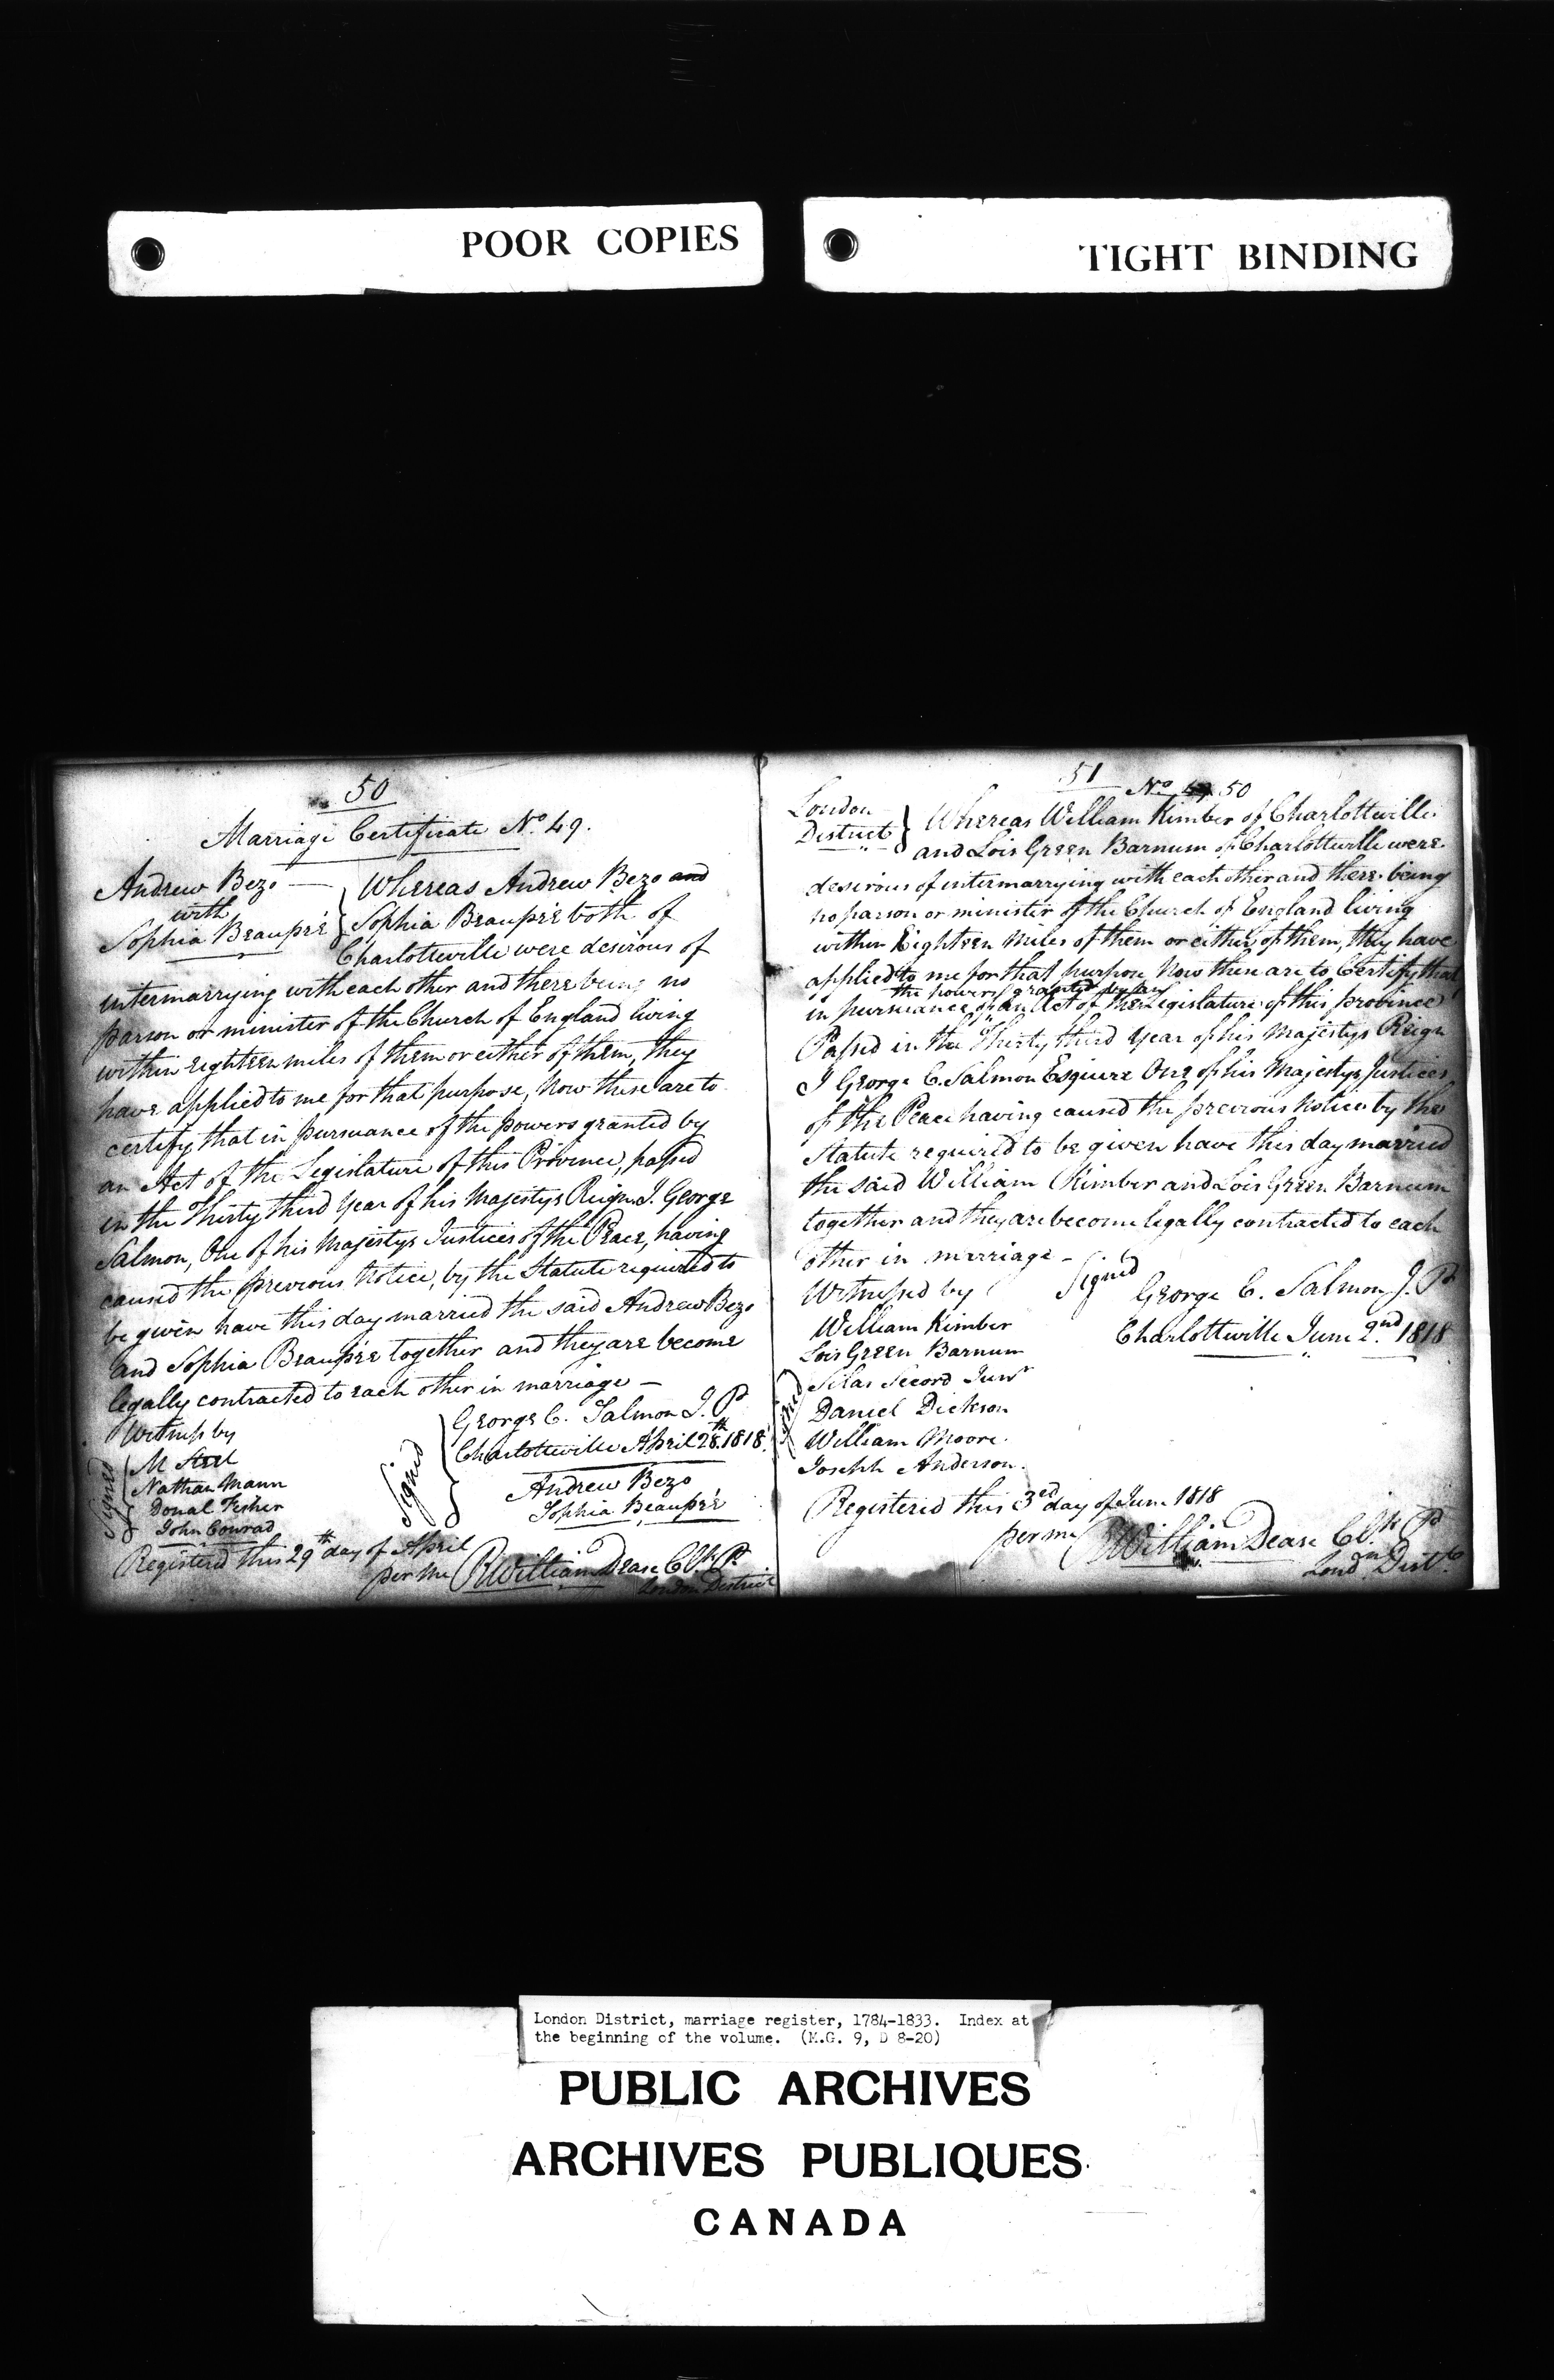 POOR COPIES
TIGHT BINDING
50
Marriage Certificate No. 49.
Andrew Bezo
with
Sophia Beaupré
Whereas Andrew Bezo and
Sophia Beaupré both of
Charlotteville were desirous of
intermarrying with each other and there being no
parson or minister of the Church of England living
within eighteen miles of them or either of them, they
have applied to me for that purpose, Now these are to
certify that in pursuance of the powers granted by
an Act of the Legislature of this Province, passed
in the Thirty third Year of his Majestys Reign I. George
Salmon, One of his Majestys Justices of the Peace, having
caused the previous Notice, by the Statute required to
be given have this day married the said Andrew Bezo
and Sophia Beaupré together and they are become
legally contracted to each other in marriage —
Witness by
Signed
M Steel
Nathan Mann
Donal Fisher
John Conrad
Signed
George C. Salmon J. P
Charlotteville April 28th 1818.
Andrew Bezo
Sophia Beaupré
Registered this 29th day of April
per me William Dease Clk P.
London District
51
No 49 50
London
District
Whereas William Kimber of Charlotteville
and Lois Green Barnum of Charlotteville were
desirous of intermarrying with each other and there being
no parson or minister of the Church of England living
within Eighteen Miles of them or either of them, they have
applied to me for that purpose Now these are to Certify that
the powers granted by an
in pursuance of an Act of the Legislature of this province
Passed in the Thirty third Year of his Majestys Reign
I George C. Salmon Esquire One of his Majestys Justices
of the Peace having caused the previous Notice by the
Statute required to be given have this day married
the said William Kimber and Lois Green Barnum
together and they are become legally contracted to each
other in marriage —
Witnessed by
Signed
George C. Salmon J. P
Charlotteville June 2nd 1818
William Kimber
Lois Green Barnum
Silas Secord Junr
Daniel Dickson
William Moore.
Joseph Anderson.
Signed
Registered this 3rd day of June 1818
per me William Dease Clk P
Lond Dist
London District, marriage register, 1784-1833. Index at
the beginning of the volume. (M.G. 9, D 8-20)
PUBLIC ARCHIVES
ARCHIVES PUBLIQUES
CANADA